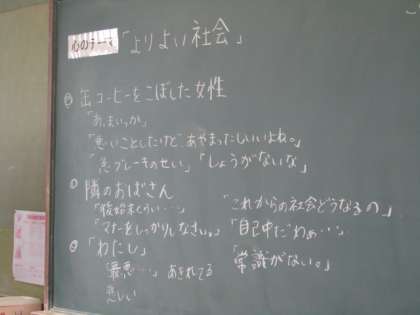 心のテーマ「よりよい社会」
缶コーヒーをこぼした女性
「あ、まいっか」
「悪いことしたけど あやまったしいいよね。」
「急ブレーキのせい」「しょうがないな」
隣のおばさん
「後始末くらい…」 「これからの社会どうなるの」
「マナーをしっかりしなさい。」「自己中だわぁ…」
「わたし」
「最悪…」 あきれてる 「常識がない。」
悲しい